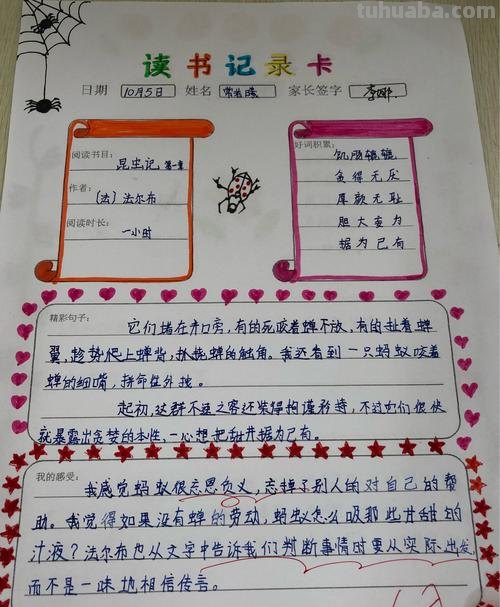 tuhuaba.com
读书记录卡
日期 10月5日 姓名 常若曦 家长签字 李娜.
阅读书目:
昆虫记 第一章
作者:
(法)法尔布
阅读时长:
一小时
好词积累:
饥肠辘辘
贪得无厌
厚颜无耻
胆大妄为
据为己有
精彩句子:
它们堵在井口旁,有的死咬着蝉不放,有的扯着蝉
翼,趁势爬上蝉背,挑挠蝉的触角。我还看到一只蚂蚁咬着
蝉的细嘴,拼命往外拽。
起初,这群不速之客还装得拘谨矜持,不过如们很快
就暴露出贪婪的本性,一心想把甜井据为己有。
我的感受:
我感觉蚂蚁很忘恩负义,忘掉了别人的对自己的帮
助。我觉得如果没有蝉的劳动,蚂蚁怎么吸那些甘甜的
汁液?法尔布也从文字中告诉我们判断事情时要从实际出发
而不是一味地相信传言。